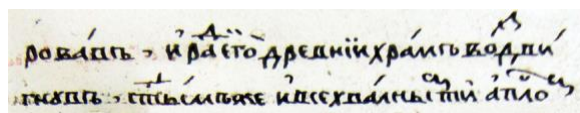 рова́въ, и҆ раⷣ єго̀ дре́внїи хра́мъ воⷥдви́
гнувъ, ст҃ы́мъже и҆ всехва́лныⷨ